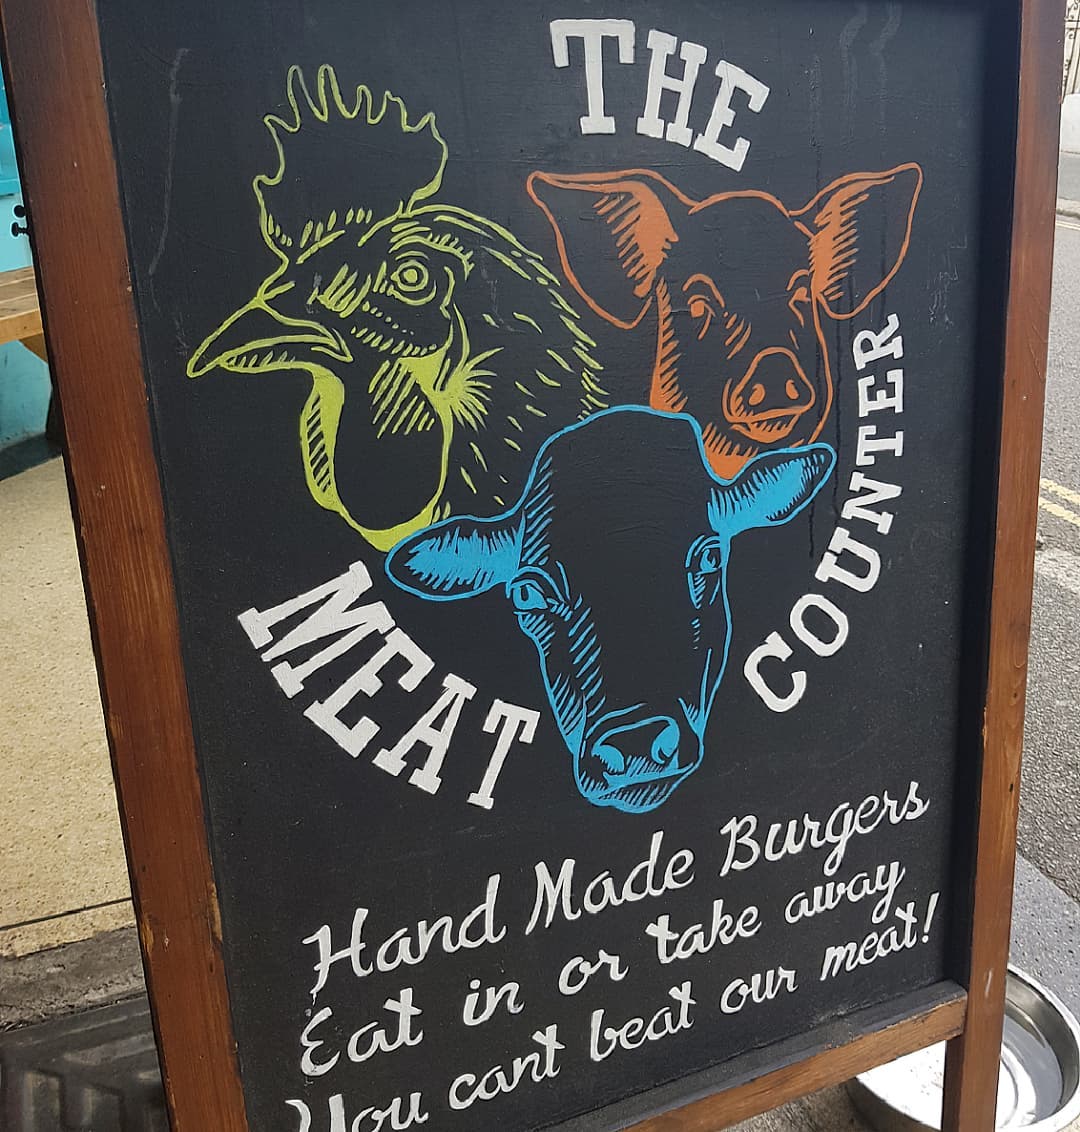 THE
MEAT
COUNTER
Hand Made Burgers
Eat in or take away
You cant beat our meat!